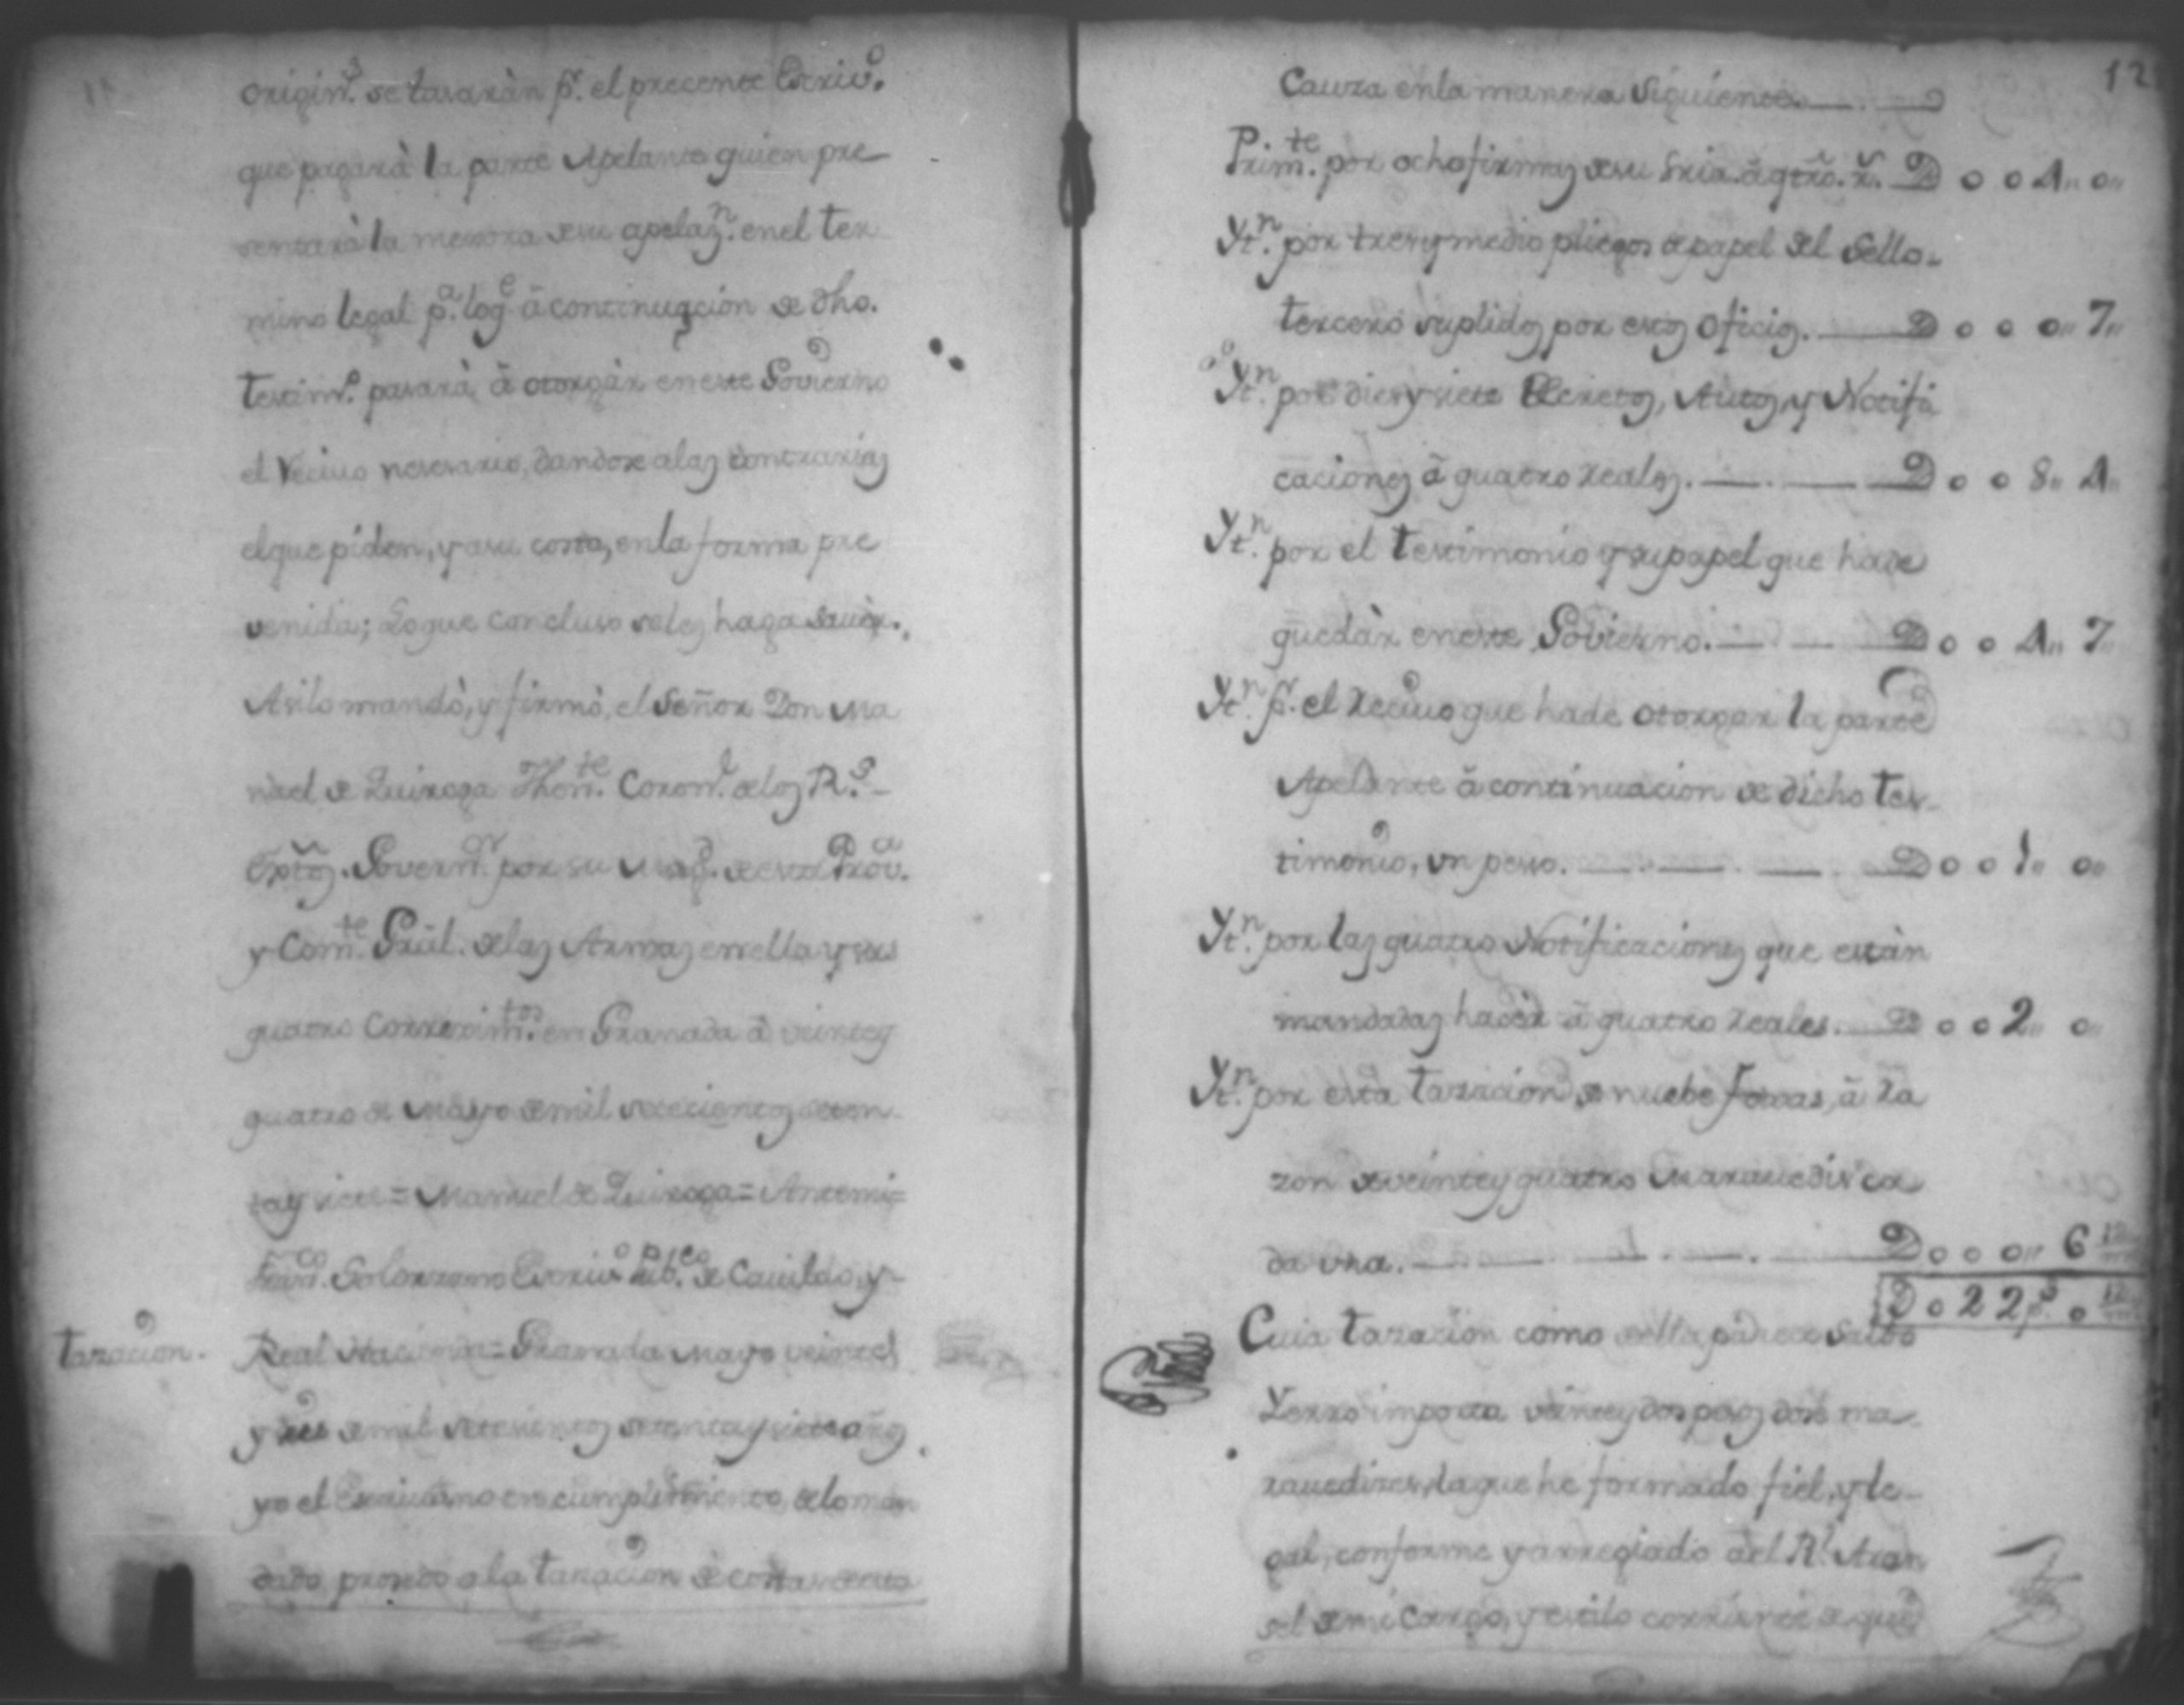 origin.s se tasaràn p.r el precente Escriv.o
que pagarà la parte Apelante quien pre
sentarà la mexora de su apelaz.n en el ter
mino legal p.a log.e â continuacion de dho.
testim.o pasarà â otorgàr en este Govierno
el Recivo nesesario, dandose a las contrarias
el que piden, y a su costa, en la forma pre
venida; Lo que concluso se les haga savèr.
Asi lo mandò, y firmò, el Señor Don Ma
nuel de Quiroga Then.te Coron.l de los R.s
Extos. Govern.or por su Mag.d de esta Prov.a
y Com.te Gral. de las Armas en ella y sus
quatro Correxim.tos en Granada â veinte y
quatro de Mayo de mil setecientos seten
ta y siete = Manuel de Quiroga = Antemi =
Solorzano Escriv.o pub.co de Cavildo, y
tasacion. Real Hacienda = Granada Mayo veinte
y seis de mil setesientos setenta y siete años.
yo el Escrivano en cumplimiento, de lo man
dado, prosedo a la tasacion de costas de esta
12
Cauza en la manera siguiente.
Prim.te por ocho firmas de su Sria. â qtro. r.s D o o 4,, o,,
Yt.n por tres y medio pliegos de papel del Sello
tercero suplidos por estos oficios. D o o o,, 7,,
Yt.n por dies y siete Decretos, Autos, y Notifi
caciones â quatro reales. D o o 8,, 4,,
Yt.n por el testimonio y su papel que ha de
quedàr en este Govierno. D o o 4,, 7,,
Yt.n p.r el recivo que ha de otorgar la parte
Apelante â continuacion de dicho tes
timonio, un pesso. D o o 1,, o,,
Yt.n por las quatro Notificaciones que estàn
mandadas hacer â quatro reales. D o o 2,, o,,
Yt.n por esta tasacion de nuebe foxas, â ra
zon de veinte y quatro maravedis ca
da una. D o o o,, 6 12
D o 2 2 p.s o 12
Cuia tasacion como de ella parece salvo
Yerro importa veinte y dos pesos dose ma
ravedises, la que he formado fiel, y le
gal, conforme y arregiado a el R.l Aran
sel de mi cargo, y estilo corriente de que